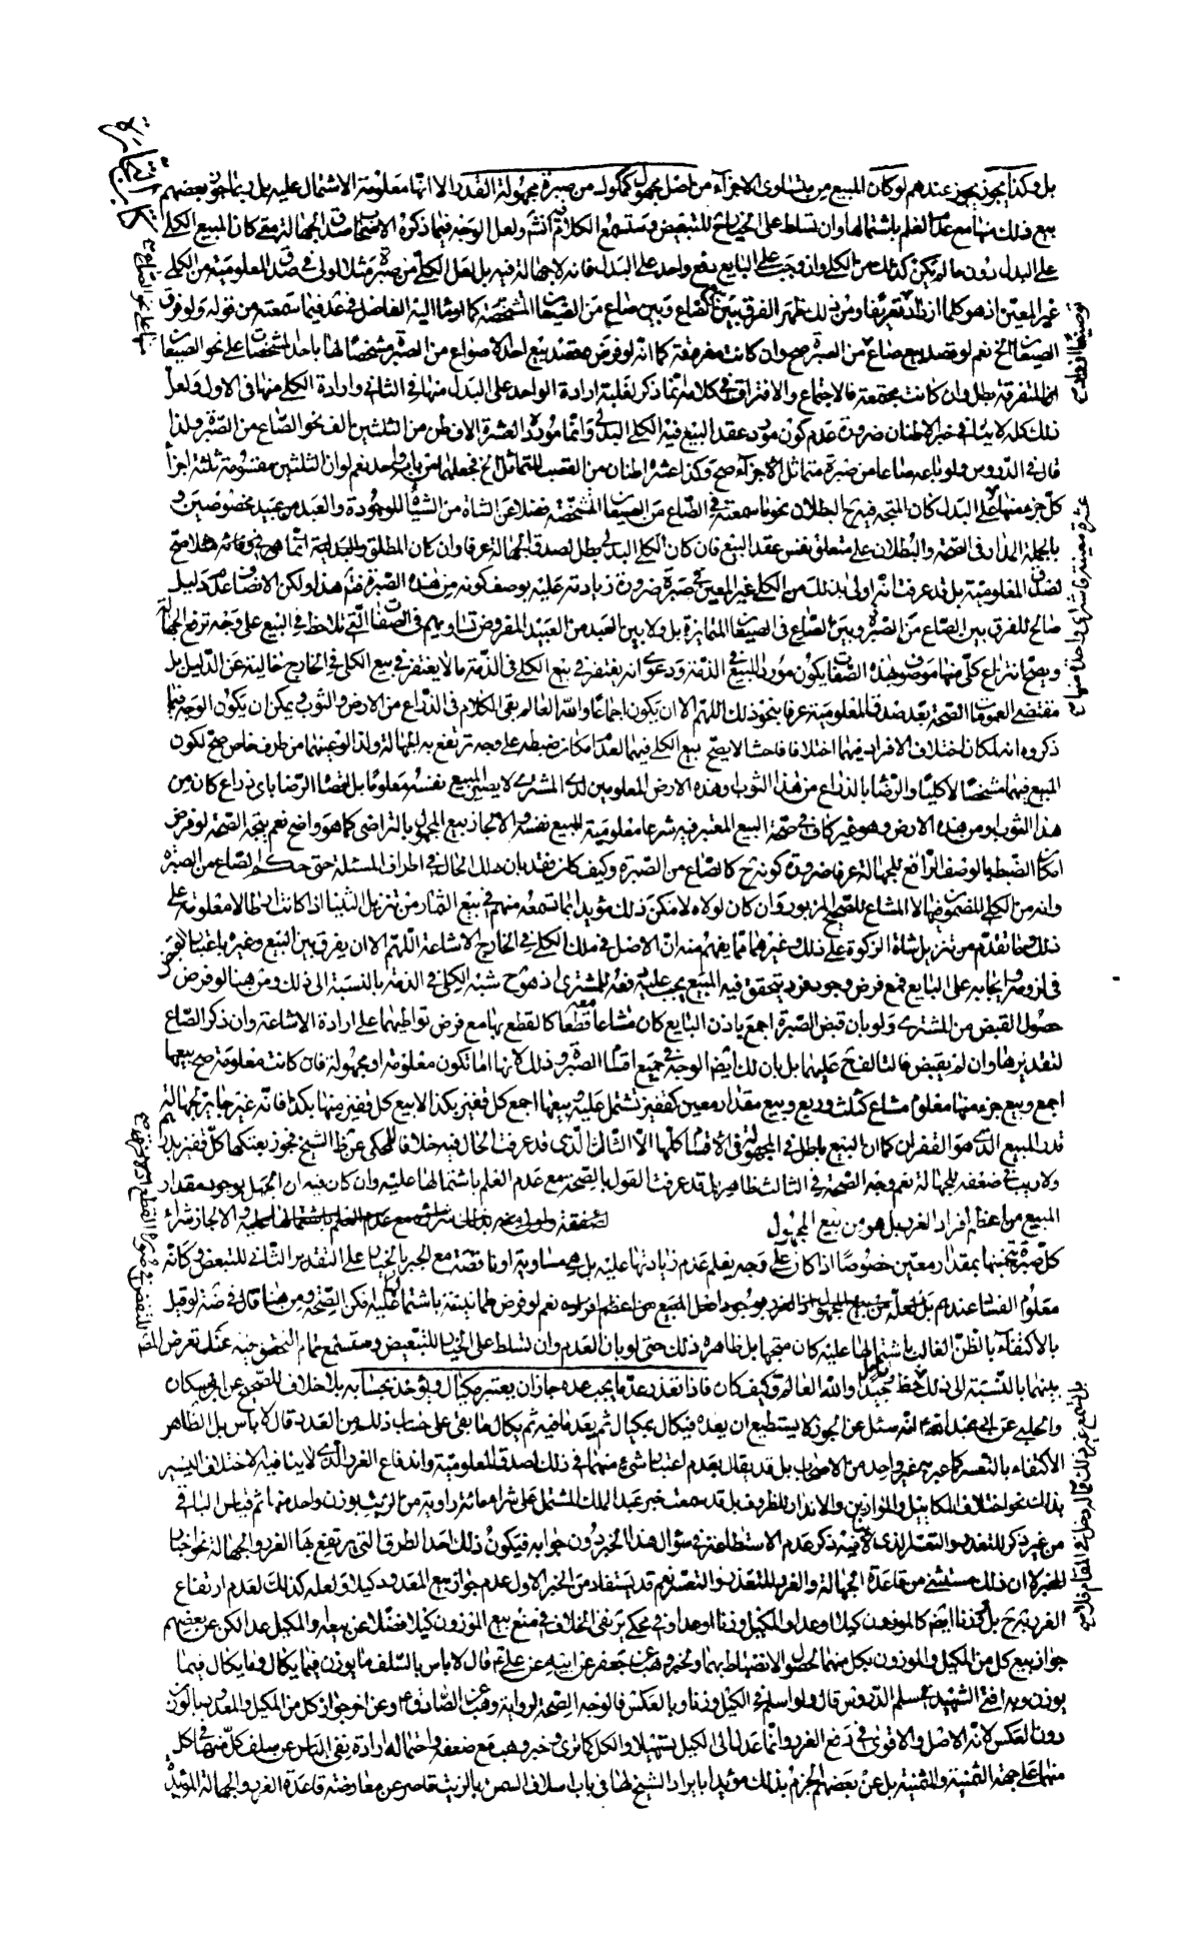 بل وكذا يجوز عندهم لو كان المبيع من متساوى الاجزاء من اصل مجهول كمكوك من صبرة مجهولة القدر الا انها معلومة الاشتمال عليه بل ربما جوز بعضهم
بيع ذلك منها مع عدم العلم باشتمالها وان تسلط على الخيار للتبعض وستسمع الكلام فيه انشاء ولعل الوجه فيما ذكره الاصحاب صدق الجهالة متى كان المبيع الكلى
على البدل دون ما لم يكن كذلك من الكلى وان وجب على البايع دفع واحد على البدل فانه لا جهالة فيه بل لعل الكلى من صبرة مثلا اولى فى صدق المعلومية من الكلى
غير المعين اذ هو كلما ازداد تعريفا ومن ذلك ظهر الفرق بين الصاع وبين صاع من الصيعان المشخصة كما اومأ اليه الفاضل فى عد فيما سمعته من قوله ولو فرق
الصيعان الخ نعم لو قصد بيع صاع من الصبرة صح وان كانت متفرقة كما انه لو فرض قصد بيع احد الاصواع من الصبرة مشخصا لها باحد المشخصات على نحو الصيعان
المتفرقة بطل وان كانت مجتمعة فالاجتماع والافتراق فى كلامه انما ذكر لغلبة ارادة الواحد على البدل منها فى الثانى وارادة الكلى منها فى الاول ولعل
ذلك كله لا ينافى خبر الاطنان ضرورة عدم كون مورد عقد البيع فيه الكلى البدلى وانما مورده العشرة الاف طن من الثلثين الف نحو الصاع من الصبرة ولذا
قال فى الدروس ولو باعه صاعا من صبرة متماثل الاجزاء صح وكذا عشرة اطنان من القصب المتماثل الخ فجعلهما من باب واحد نعم لو ان الثلثين مقسومة ثلثة اجزاء
كل جزء منها على البدل كان المتجه فيه ح البطلان نحو ما سمعته فى الصاع من الصيعان المشخصة فضلا عن الشاة من الشياه الموجودة والعبد من عبيد مخصوصين و
بالجملة المدار فى الصحة والبطلان على متعلق نفس عقد البيع فان كان الكلى البدلى بطل لصدق الجهالة عرفا وان كان المطلق
لصدق المعلومية بل قد عرفت انه اولى بذلك من الكلى غير المعين فى صبرة ضرورة زيادته عليه بوصف كونه من هذه الصبرة فتم هذا ولكن الانصاف عدم دليل
صالح للفرق بين الصاع من الصبرة وبين الصاع فى الصيعان المتمايزة بل ولا بين العبد من العبيد المفروض تساويهم فى الصفات التى تلاحظ فى البيع على وجه ترفع الجهالة
ويصح انتزاع كلى منها موصوف بهذه الصفات يكون مورد المبيع فى الذمة ودعوى انه يغتفر فى بيع الكلى فى الذمة ما لا يغتفر فى بيع الكلى فى الخارج خالية عن الدليل بل
مقتضى العمومات الصحة بعد صدق المعلومية عرفا بنحو ذلك اللهم الا ان يكون اجماعا والله العالم بقى الكلام فى الذراع من الارض والثوب ويمكن ان يكون الوجه فيما
ذكروه انه لمكان اختلاف الافراد فيهما اختلافا فاحشا لا يصح بيع الكلى فيهما لعدم امكان ضبطه على وجه ترتفع به الجهالة ولذا لو عينهما من طرف خاص صح لكون
المبيع فيهما مشخصا لا كليا والرضا بالذراع من هذا الثوب وهذه الارض المعلومين لدى المشترى لا يصير المبيع نفسه معلوما بل اقصاه الرضا باى ذراع كان من
هذا الثوب او من هذه الارض وهو غير كاف فى صحة البيع المعتبر فيه شرعا معلومية المبيع نفسه والا لجاز بيع المجهول بالتراضى كما هو واضح نعم يتجه الصحة لو فرض
امكان الضبط بالوصف الرافع للجهالة عرفا ضرورة كونه ح كالصاع من الصبرة وكيف كان فقد بان لك الحال فى اطراف المسئلة حتى حكم الصاع من الصبرة
وانه من الكلى المضمون فيها لا المشاع للصحيح المزبور وان كان لولاه لامكن ذلك مؤيدا بما تسمعه منهم فى بيع الثمار من تنزيل الثنيا اذا كانت ارطالا معلومة على
ذلك وبما تقدم من تنزيل شاة الزكوة على ذلك وغيرهما مما يفهم منه ان الاصل فى ملك الكلى فى الخارج الاشاعة اللهم الا ان يفرق بين البيع وغيره باعتبار القبض
فى لزومه وايجابه على البايع فمع فرض وجود فرد يتحقق فيه المبيع يجب عليه دفعه للمشترى اذ هو ح شبه الكلى فى الذمة بالنسبة الى ذلك ومن هنا لو فرض
حصول القبض من المشترى ولو بان قبض الصبرة اجمع باذن البايع كان مشاعا معه قطعا كالقطع بها مع فرض تواطيهما على ارادة الاشاعة وان ذكر الصاع
لتقديرها وان لم يقبض فالتالف ح عليهما بل بان لك ايضا الوجه فى جميع اقسام الصبرة وذلك لانها اما تكون معلومة او مجهولة فان كانت معلومة صح بيعها
اجمع وبيع جزء منها معلوم مشاع كثلث وربع وبيع مقدار معين كقفيز تشتمل عليه وبيعها اجمع كل قفيز بكذا لا بيع كل قفيز منها بكذا فانه غير جايز لجهالة
قدر المبيع الذى هو القفيز ان كما ان البيع باطل فى المجهولة فى الاقسام كلها الا الثالث الذى قد عرفت الحال فيه خلافا للمحكى عن ظ الشيخ فجوز بعتكها كل قفيز بدرهم
ولا ريب فى ضعفه للجهالة نعم وجه الصحة فى الثالث ظاهر بل قد عرفت القول بالصحة مع عدم العلم باشتمالها عليه وان كان فيه ان الجهل بوجود مقدار
المبيع من اعظم افراد الغرر بل هو من بيع المجهول والا لجاز شراء
كل صبرة بحسبها بمقدار معين خصوصا اذا كان على وجه يعلم عدم زيادتها عليه بل هى مساوية او ناقصة مع الجبر بالخيار على التقدير الثانى للتبعض وكانه
معلوم الفساد عندهم بل لعله من اعظم افراده نعم لو فرض طمانينته باشتمالها عليه امكن الصحة ومن هنا قال فى ضه لو قيل
بالاكتفاء بالظن الغالب باشتمالها عليه كان متجها بل ظاهره ذلك حتى لو بان العدم وان تسلط على الخيار للتبعيض وستسمع تمام التحقيق فيه عند تعرض المصنف
بينهما بالنسبة الى ذلك فلاحظ جيدا وتامل والله العالم وكيف كان فاذا تعذر عد ما يجب عده جاز ان يعتبر مكيال ويؤخذ بحسابه بلا خلاف للصحيح عن ابن مسكان
والحلبى عن ابى عبد الله انه سئل عن الجوز لا يستطيع ان يعده فيكال بمكيال ثم يعد ما فيه ثم يكال ما بقى على حساب ذلك من العدد قال لا باس بل الظاهر
الاكتفاء بالتعسر كما عبر به غير واحد من الاصحاب بل قد يقال بعدم اعتبار شئ منهما فى ذلك لصدق المعلومية واندفاع الغرر الذى لا ينافيه الاختلاف اليسير
بذلك نحو اختلاف المكاييل والموازين والاندار للظروف بل قد سمعت خبر عبد الملك المشتمل على شراء مائة راوية من الزيت بوزن واحد منها ثم قياس الباقى
من غير ذكر للتعذر والتعسر الذى لا ينافيه ذكر عدم الاستطاعة فى سؤال هذا الخبر دون جوابه فيكون ذلك احد الطرق التى يرتفع بها الغرر والجهالة نحو اخبار
المخبر لا ان ذلك مستثنى من قاعدة الجهالة والغرر للتعذر والتعسر نعم قد يستفاد من الخبر الاول عدم جواز بيع المعدود كيلا ولعله كذلك لعدم ارتفاع
الغرر به ح بل وكذا وزنا ايضا كالموزون كيلا او عدا والمكيل وزنا او عدا وفى محكى ير نفى الخلاف فى منع بيع الموزون كيلا فضلا عن بيعه او المكيل عدا لكن عن بعضهم
جواز بيع كل من المكيل والموزون بكل منهما لحصول الانضباط بهما ولخبر وهب عن جعفر عن ابيه عن على ع قال لا باس بالسلف ما يوزن فيما يكال وما يكال فيما
يوزن وبه افتى الشهيد فى سلم الدروس قال ولو اسلم فى الكيل وزنا وبالعكس فالوجه الصحة لرواية وهب عن الصادق ع وعن اخر جواز كل من المكيل والمعدود بالوزن
دون العكس لانه الاصل والاقوى فى دفع الغرر وانما عدل الى الكيل تسهيلا والكل كما ترى وخبر وهب مع ضعفه واحتماله ارادة نفى الباس عن سلف كل منهما فى كل
منهما على جهة الثمنية والمثمنية بل عن بعضهم الجزم بذلك مؤيدا بايراد الشيخ لها فى باب اسلاف السمن بالزيت قاصر عن معارضة قاعدة الغرر والجهالة المؤيدة